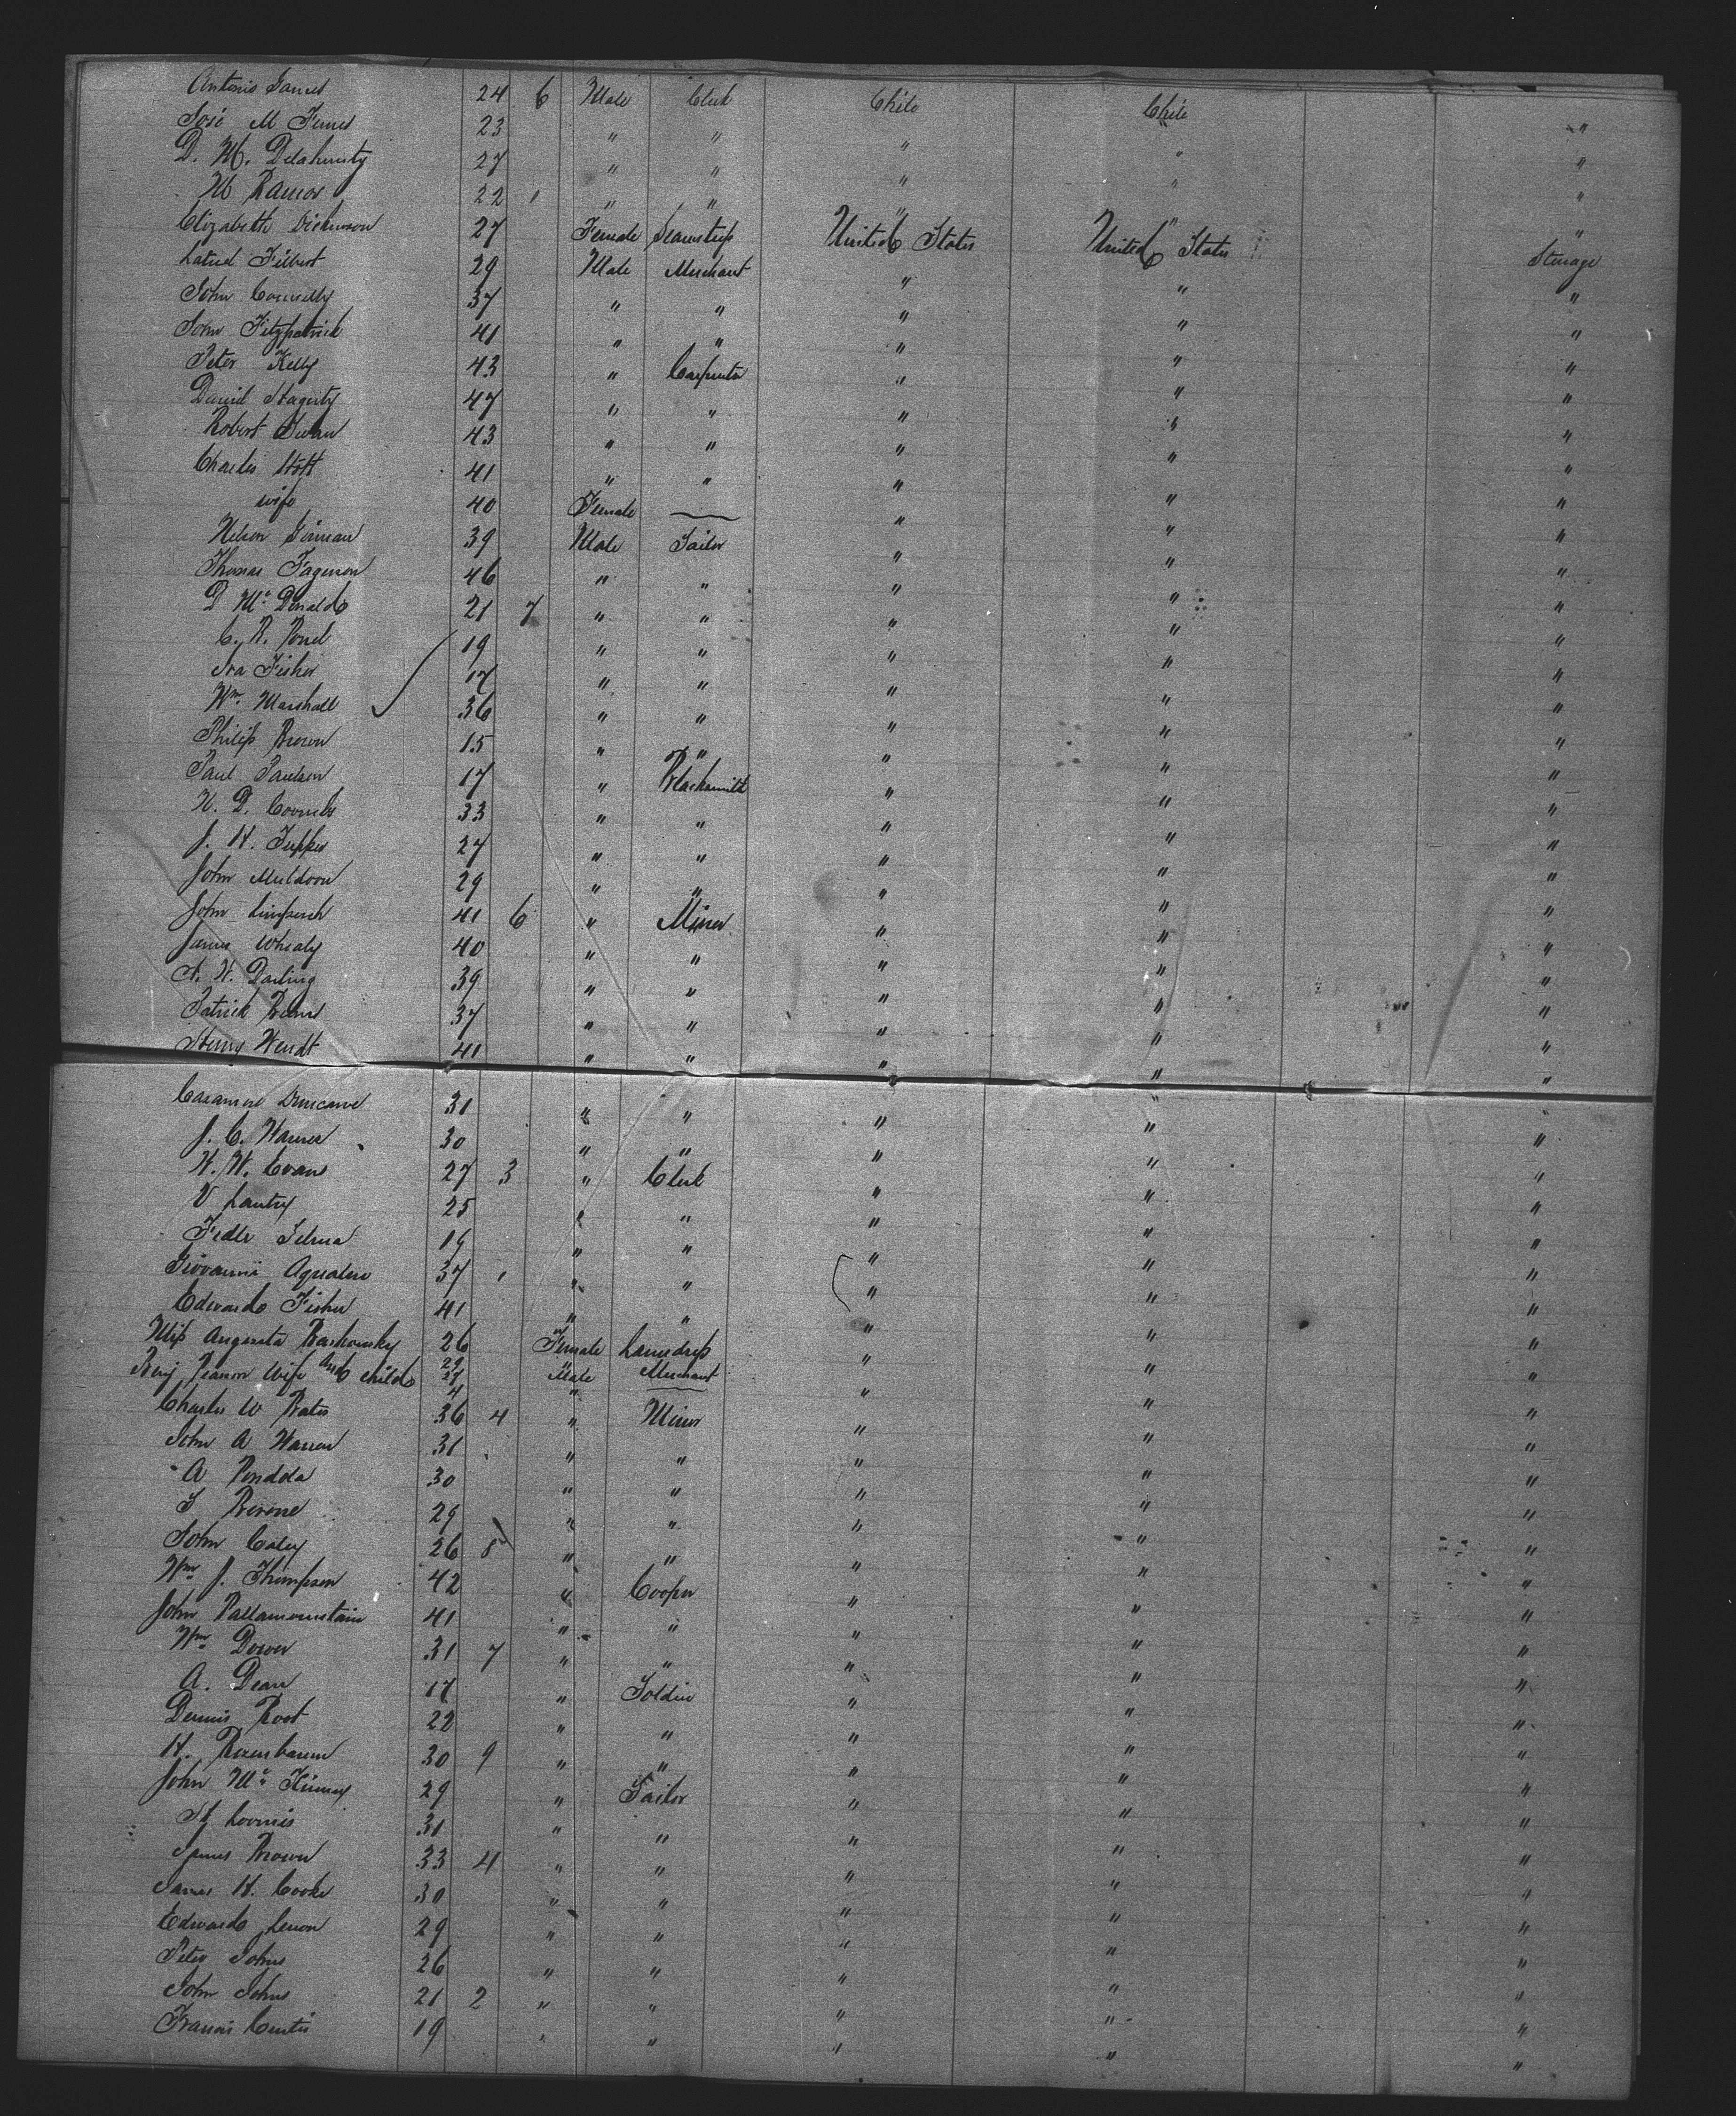 Antonio 24 6 Male Clerk Chile Chile "
José M 23 " " " " "
D. M. Delahunty 27 " " " " "
M Ramos 22 1 " " " " "
Elizabeth Dickinson 27 Female Seamstress United States United States Steerage
Filbert 29 Male Merchant " " "
John Connelly 37 " " " " "
John Fitzpatrick 41 " " " " "
Peter Kelly 43 " Carpenter " " "
Daniel Hagerty 47 " " " " "
Robert 43 " " " " "
Charles Hott 41 " " " " "
wife 40 Female — " " "
Nelson 39 Male Tailor " " "
Thomas 46 " " " " "
D Mc Donald 21 7 " " " " "
C. R. Pond 19 " " " " "
Ira Fisher 17 " " " " "
Wm. Marshall 36 " " " " "
Philip Brown 15 " " " " "
Paul Paulsen 17 " Blacksmith " " "
H. D. Coombs 33 " " " " "
J. H. Tupper 27 " " " " "
John Muldoon 29 " " " " "
John 41 6 " Miner " " "
James Whealy 40 " " " " "
A. H. Darling 39 " " " " "
Patrick Burns 37 " " " " "
Henry Wendt 41 " " " " "
31 " " " " "
J. C. Warner 30 " " " " "
H. W. Evans 27 3 " Clerk " " "
V 25 " " " " "
19 " " " " "
Giovanni 37 1 " " " " "
Edward Fisher 41 " " " " "
Miss Augusta 26 Female Laundress " " "
Benj Pearson Wife and child 29 27 4 " Male " Merchant — " " "
Charles W Bates 36 4 " Miner " " "
John A Warren 31 " " " " "
A 30 " " " " "
29 " " " " "
John Caley 26 8 " " " " "
Wm J. Thompson 42 " Cooper " " "
John Pallamountain 41 " " " " "
Wm Dower 31 7 " " " " "
A. Dean 17 " Soldier " " "
Dennis Root 22 " " " " "
H. Rosenbaum 30 9 " " " " "
John Mc Kinney 29 " Tailor " " "
Loomis 31 " " " " "
James Brown 33 4 " " " " "
James H. Cooke 30 " " " " "
Edward Lenon 29 " " " " "
Peter Johns 26 " " " " "
John Johns 21 2 " " " " "
Francis Curtis 19 " " " " "